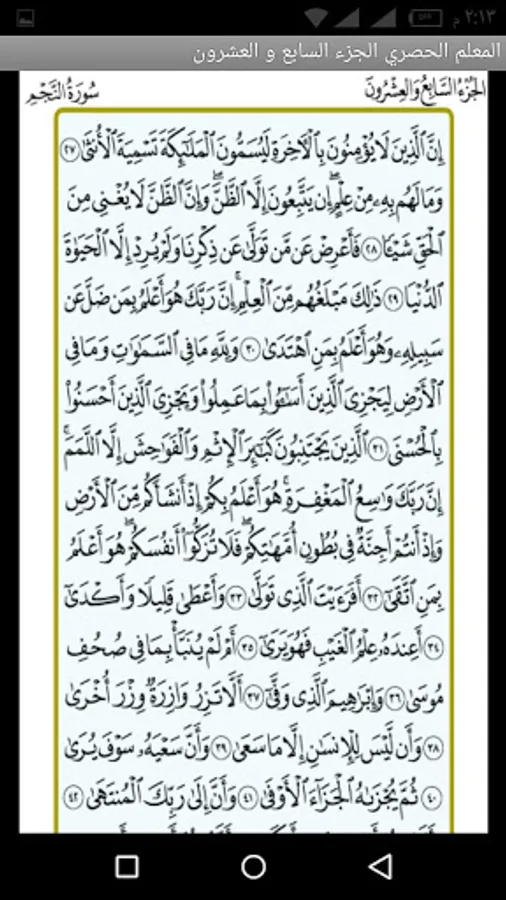 ٢:١٣ م
المعلم الحصري الجزء السابع و العشرون
الجُزْءُ السَّابِعُ وَالْعِشْرُونَ سُورَةُ النَّجْمِ
إِنَّ ٱلَّذِينَ لَا يُؤْمِنُونَ بِٱلْأَخِرَةِ لَيُسَمُّونَ ٱلْمَلَٰٓئِكَةَ تَسْمِيَةَ ٱلْأُنثَىٰ ٢٧
وَمَا لَهُم بِهِۦ مِنْ عِلْمٍۖ إِن يَتَّبِعُونَ إِلَّا ٱلظَّنَّۖ وَإِنَّ ٱلظَّنَّ لَا يُغْنِى مِنَ
ٱلْحَقِّ شَيْـًٔا ٢٨ فَأَعْرِضْ عَن مَّن تَوَلَّىٰ عَن ذِكْرِنَا وَلَمْ يُرِدْ إِلَّا ٱلْحَيَوٰةَ
ٱلدُّنْيَا ٢٩ ذَٰلِكَ مَبْلَغُهُم مِّنَ ٱلْعِلْمِۚ إِنَّ رَبَّكَ هُوَ أَعْلَمُ بِمَن ضَلَّ عَن
سَبِيلِهِۦ وَهُوَ أَعْلَمُ بِمَنِ ٱهْتَدَىٰ ٣٠ وَلِلَّهِ مَا فِى ٱلسَّمَٰوَٰتِ وَمَا فِى
ٱلْأَرْضِ لِيَجْزِىَ ٱلَّذِينَ أَسَٰٓـُٔوا۟ بِمَا عَمِلُوا۟ وَيَجْزِىَ ٱلَّذِينَ أَحْسَنُوا۟
بِٱلْحُسْنَى ٣١ ٱلَّذِينَ يَجْتَنِبُونَ كَبَٰٓئِرَ ٱلْإِثْمِ وَٱلْفَوَٰحِشَ إِلَّا ٱللَّمَمَۚ
إِنَّ رَبَّكَ وَٰسِعُ ٱلْمَغْفِرَةِۚ هُوَ أَعْلَمُ بِكُمْ إِذْ أَنشَأَكُم مِّنَ ٱلْأَرْضِ
وَإِذْ أَنتُمْ أَجِنَّةٌ فِى بُطُونِ أُمَّهَٰتِكُمْۖ فَلَا تُزَكُّوٓا۟ أَنفُسَكُمْۖ هُوَ أَعْلَمُ
بِمَنِ ٱتَّقَىٰٓ ٣٢ أَفَرَءَيْتَ ٱلَّذِى تَوَلَّىٰ ٣٣ وَأَعْطَىٰ قَلِيلًا وَأَكْدَىٰٓ
٣٤ أَعِندَهُۥ عِلْمُ ٱلْغَيْبِ فَهُوَ يَرَىٰٓ ٣٥ أَمْ لَمْ يُنَبَّأْ بِمَا فِى صُحُفِ
مُوسَىٰ ٣٦ وَإِبْرَٰهِيمَ ٱلَّذِى وَفَّىٰٓ ٣٧ أَلَّا تَزِرُ وَازِرَةٌ وِزْرَ أُخْرَىٰ
٣٨ وَأَن لَّيْسَ لِلْإِنسَٰنِ إِلَّا مَا سَعَىٰ ٣٩ وَأَنَّ سَعْيَهُۥ سَوْفَ يُرَىٰ
٤٠ ثُمَّ يُجْزَىٰهُ ٱلْجَزَآءَ ٱلْأَوْفَىٰ ٤١ وَأَنَّ إِلَىٰ رَبِّكَ ٱلْمُنتَهَىٰ ٤٢